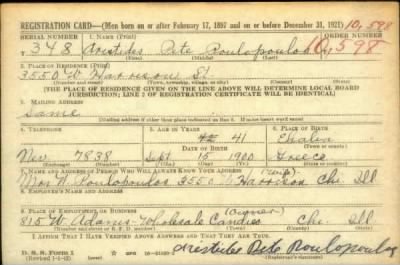 REGISTRATION CARD—(Men born on or after February 17, 1897 and on or before December 31, 1921) 10,598
SERIAL NUMBER 1. NAME (Print) ORDER NUMBER
T 348 Aristides Pete Poulopoulos 10,598
(First) (Middle) (Last)
2. PLACE OF RESIDENCE (Print)
3550 W Harrison St.
(Number and street) (Town, township, village, or city) (County) (State)
[THE PLACE OF RESIDENCE GIVEN ON THE LINE ABOVE WILL DETERMINE LOCAL BOARD
JURISDICTION; LINE 2 OF REGISTRATION CERTIFICATE WILL BE IDENTICAL]
3. MAILING ADDRESS
Same
[Mailing address if other than place indicated on line 2. If same insert word same]
4. TELEPHONE 5. AGE IN YEARS 6. PLACE OF BIRTH
41
DATE OF BIRTH
Nev 7838 Sept 15 1900 Greece
7. NAME AND ADDRESS OF PERSON WHO WILL ALWAYS KNOW YOUR ADDRESS (Wife)
Mrs. Poulopoulos 3550 W Harrison Chi. Ill
8. EMPLOYER'S NAME AND ADDRESS
9. PLACE OF EMPLOYMENT OR BUSINESS (Owner)
815 W Adams - Wholesale Candies Chi. Ill.
(Number and street or R. F. D. number) (Town) (County) (State)
I AFFIRM THAT I HAVE VERIFIED ABOVE ANSWERS AND THAT THEY ARE TRUE.
D. S. S. Form 1
(Revised 1-1-42) GPO Aristides Pete Poulopoulos